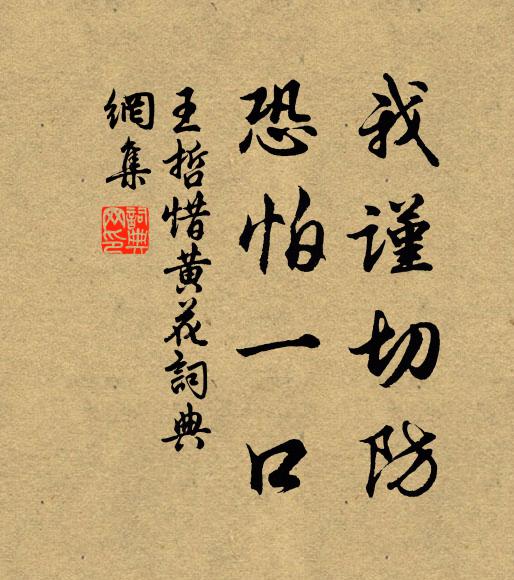 我謹切防
恐怕一口
王哲惜黄花詞典
網集
詞典
网印